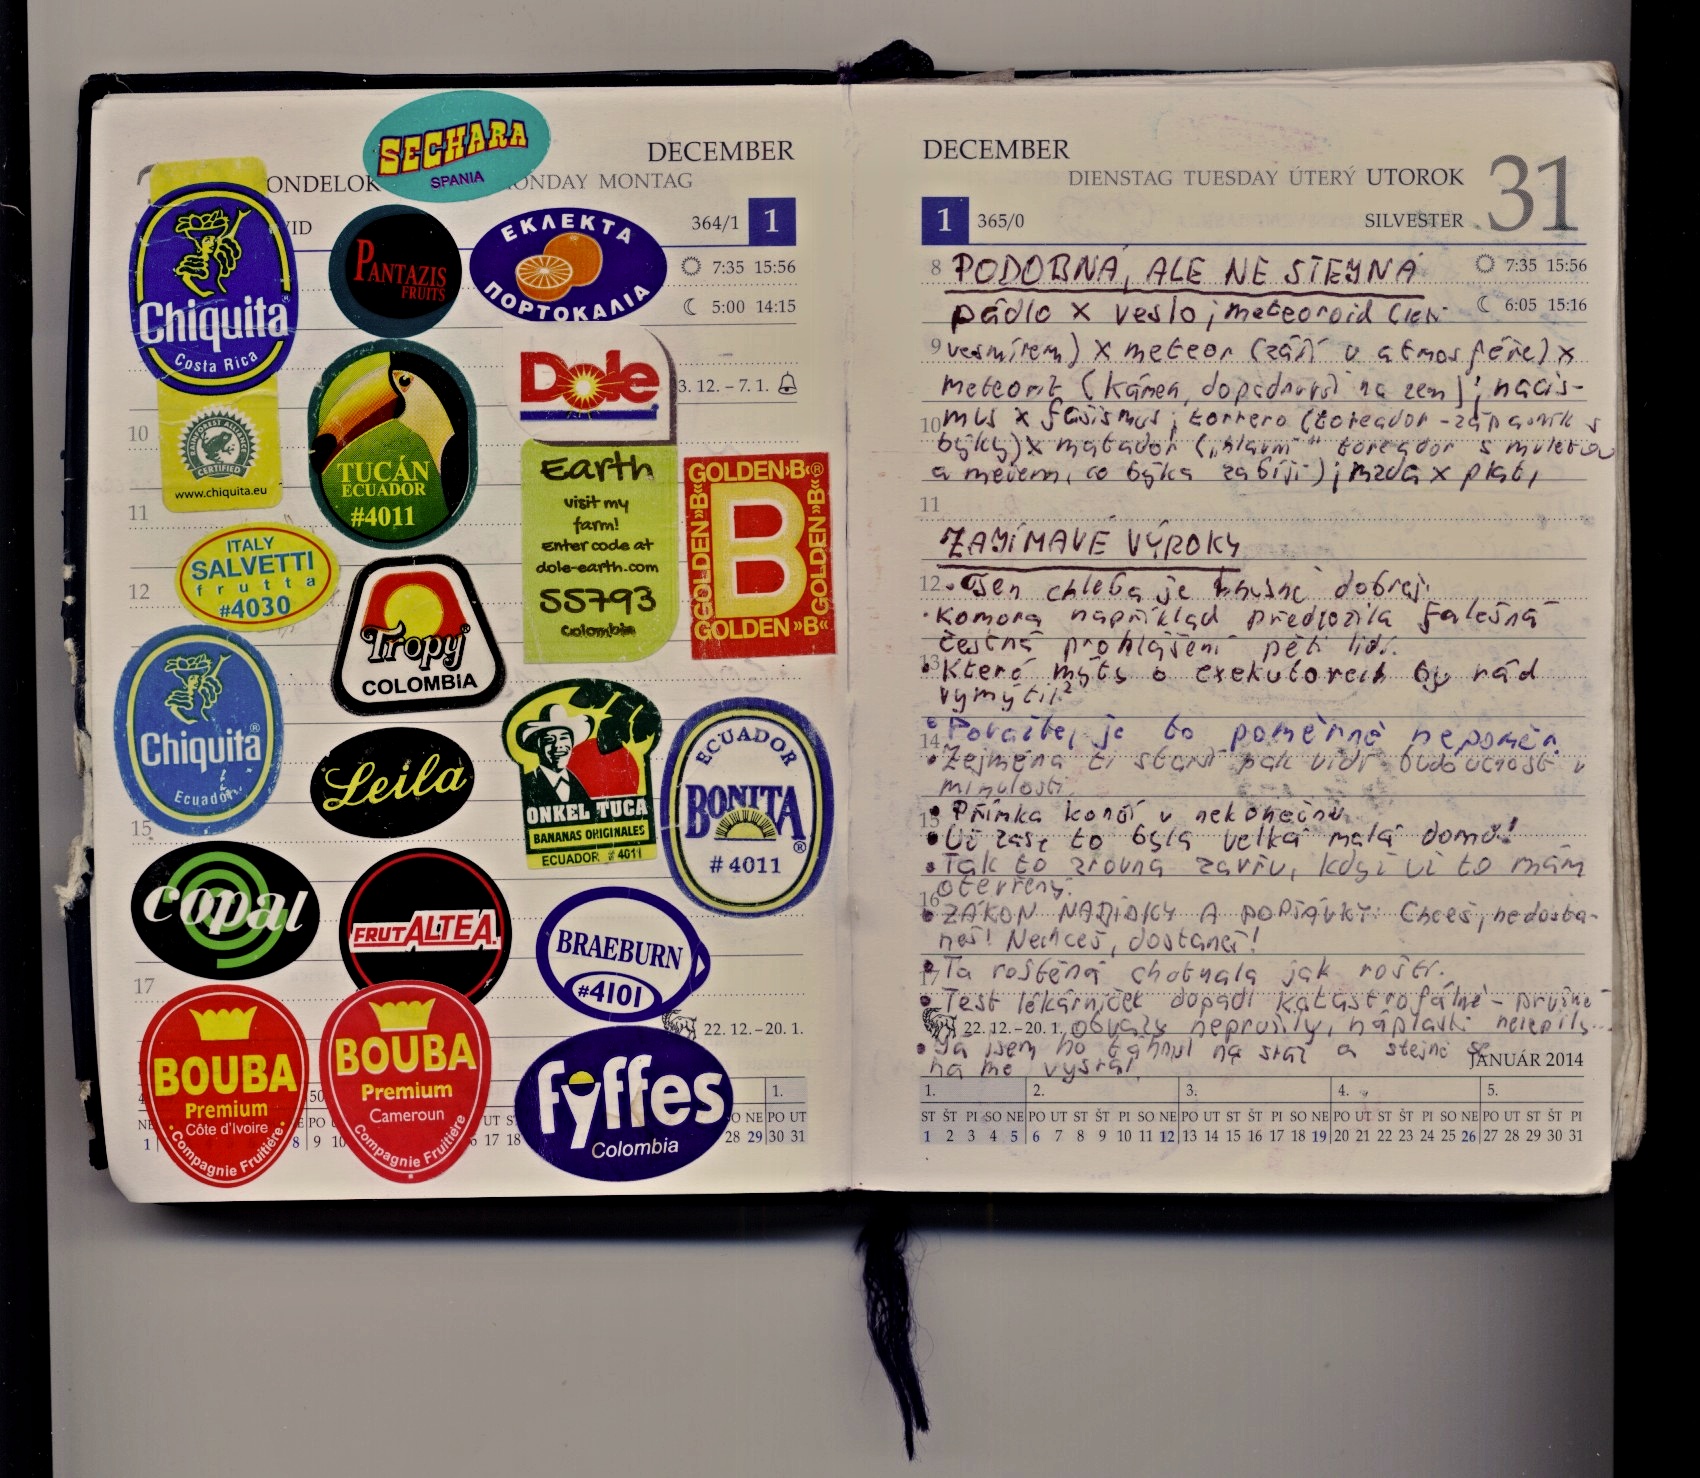 SECHARA
SPANIA
DECEMBER
ONDELOK
ONDAY MONTAG
VID
364/1
1
7:35 15:56
5:00 14:15
3. 12. – 7. 1.
Chiquita
Costa Rica
RAINFOREST ALLIANCE
CERTIFIED
www.chiquita.eu
PANTAZIS
FRUITS
ΕΚΛΕΚΤΑ
ΠΟΡΤΟΚΑΛΙΑ
Dole
TUCÁN
ECUADOR
#4011
Earth
visit my
farm!
Enter code at
dole-earth.com
55793
Colombia
GOLDEN»B«®
GOLDEN»B«
B
GOLDEN»B«
GOLDEN »B«
10
11
12
15
17
ITALY
SALVETTI
frutta
#4030
Tropy®
COLOMBIA
Chiquita®
Ecuador
Leila
ONKEL TUCA
BANANAS ORIGINALES
ECUADOR # 4011
ECUADOR
BONITA
®
# 4011
copal
FRUTALTEA.
BRAEBURN
#4101
22. 12. – 20. 1.
BOUBA
Premium
Côte d'Ivoire
Compagnie Fruitière
BOUBA
Premium
Cameroun
Compagnie Fruitière
fyffes
Colombia
1.
NE PO UT
28 29 30 31
DECEMBER
DIENSTAG TUESDAY ÚTERÝ UTOROK
31
1
365/0
SILVESTER
8 PODOBNÁ, ALE NE STEJNÁ
7:35 15:56
pádlo x veslo; meteoroid (
6:05 15:16
9 vesmírem) x meteor (září v atmosféře) x
meteorit (kámen, dopadnuvší na zem); nacis-
10 mus x fašismus; torrero (toreador - zápasník s
býky) x matador („hlavní" toreador s muletou
a mečem, co býka zabíjí); mzda x plat;
11
ZAJÍMAVÉ VÝROKY
12 • Jen chleba je hnusně dobrej.
• Komora například předložila falešná
čestná prohlášení pěti lidí.
13 • Které mýty o exekutorech by rád
vymýtil?
14 • Považte, je to poměrně nepoměr.
• Zejména ti starší pak vidí budoucnost v
minulosti.
15 • Přímka končí v nekonečnu.
• Už zase to byla velká malá domů!
• Tak to zrovna zavřu, když už to mám
otevřený.
16 • ZÁKON NABÍDKY A POPTÁVKY: Chceš, nedosta-
neš! Nechceš, dostaneš!
17 • Ta roštěná chotnala jak roští.
• Test lékárniček dopadl katastrofálně - pružné
22. 12. – 20. 1. obvazy nepružily, náplasti nelepily...
• Já jsem ho táhnul na sraz a stejně se
JANUÁR 2014
na mě vysral.
1. 2. 3. 4. 5.
ST ŠT PI SO NE PO UT ST ŠT PI SO NE PO UT ST ŠT PI SO NE PO UT ST ŠT PI SO NE PO UT ST ŠT PI
1 2 3 4 5 6 7 8 9 10 11 12 13 14 15 16 17 18 19 20 21 22 23 24 25 26 27 28 29 30 31